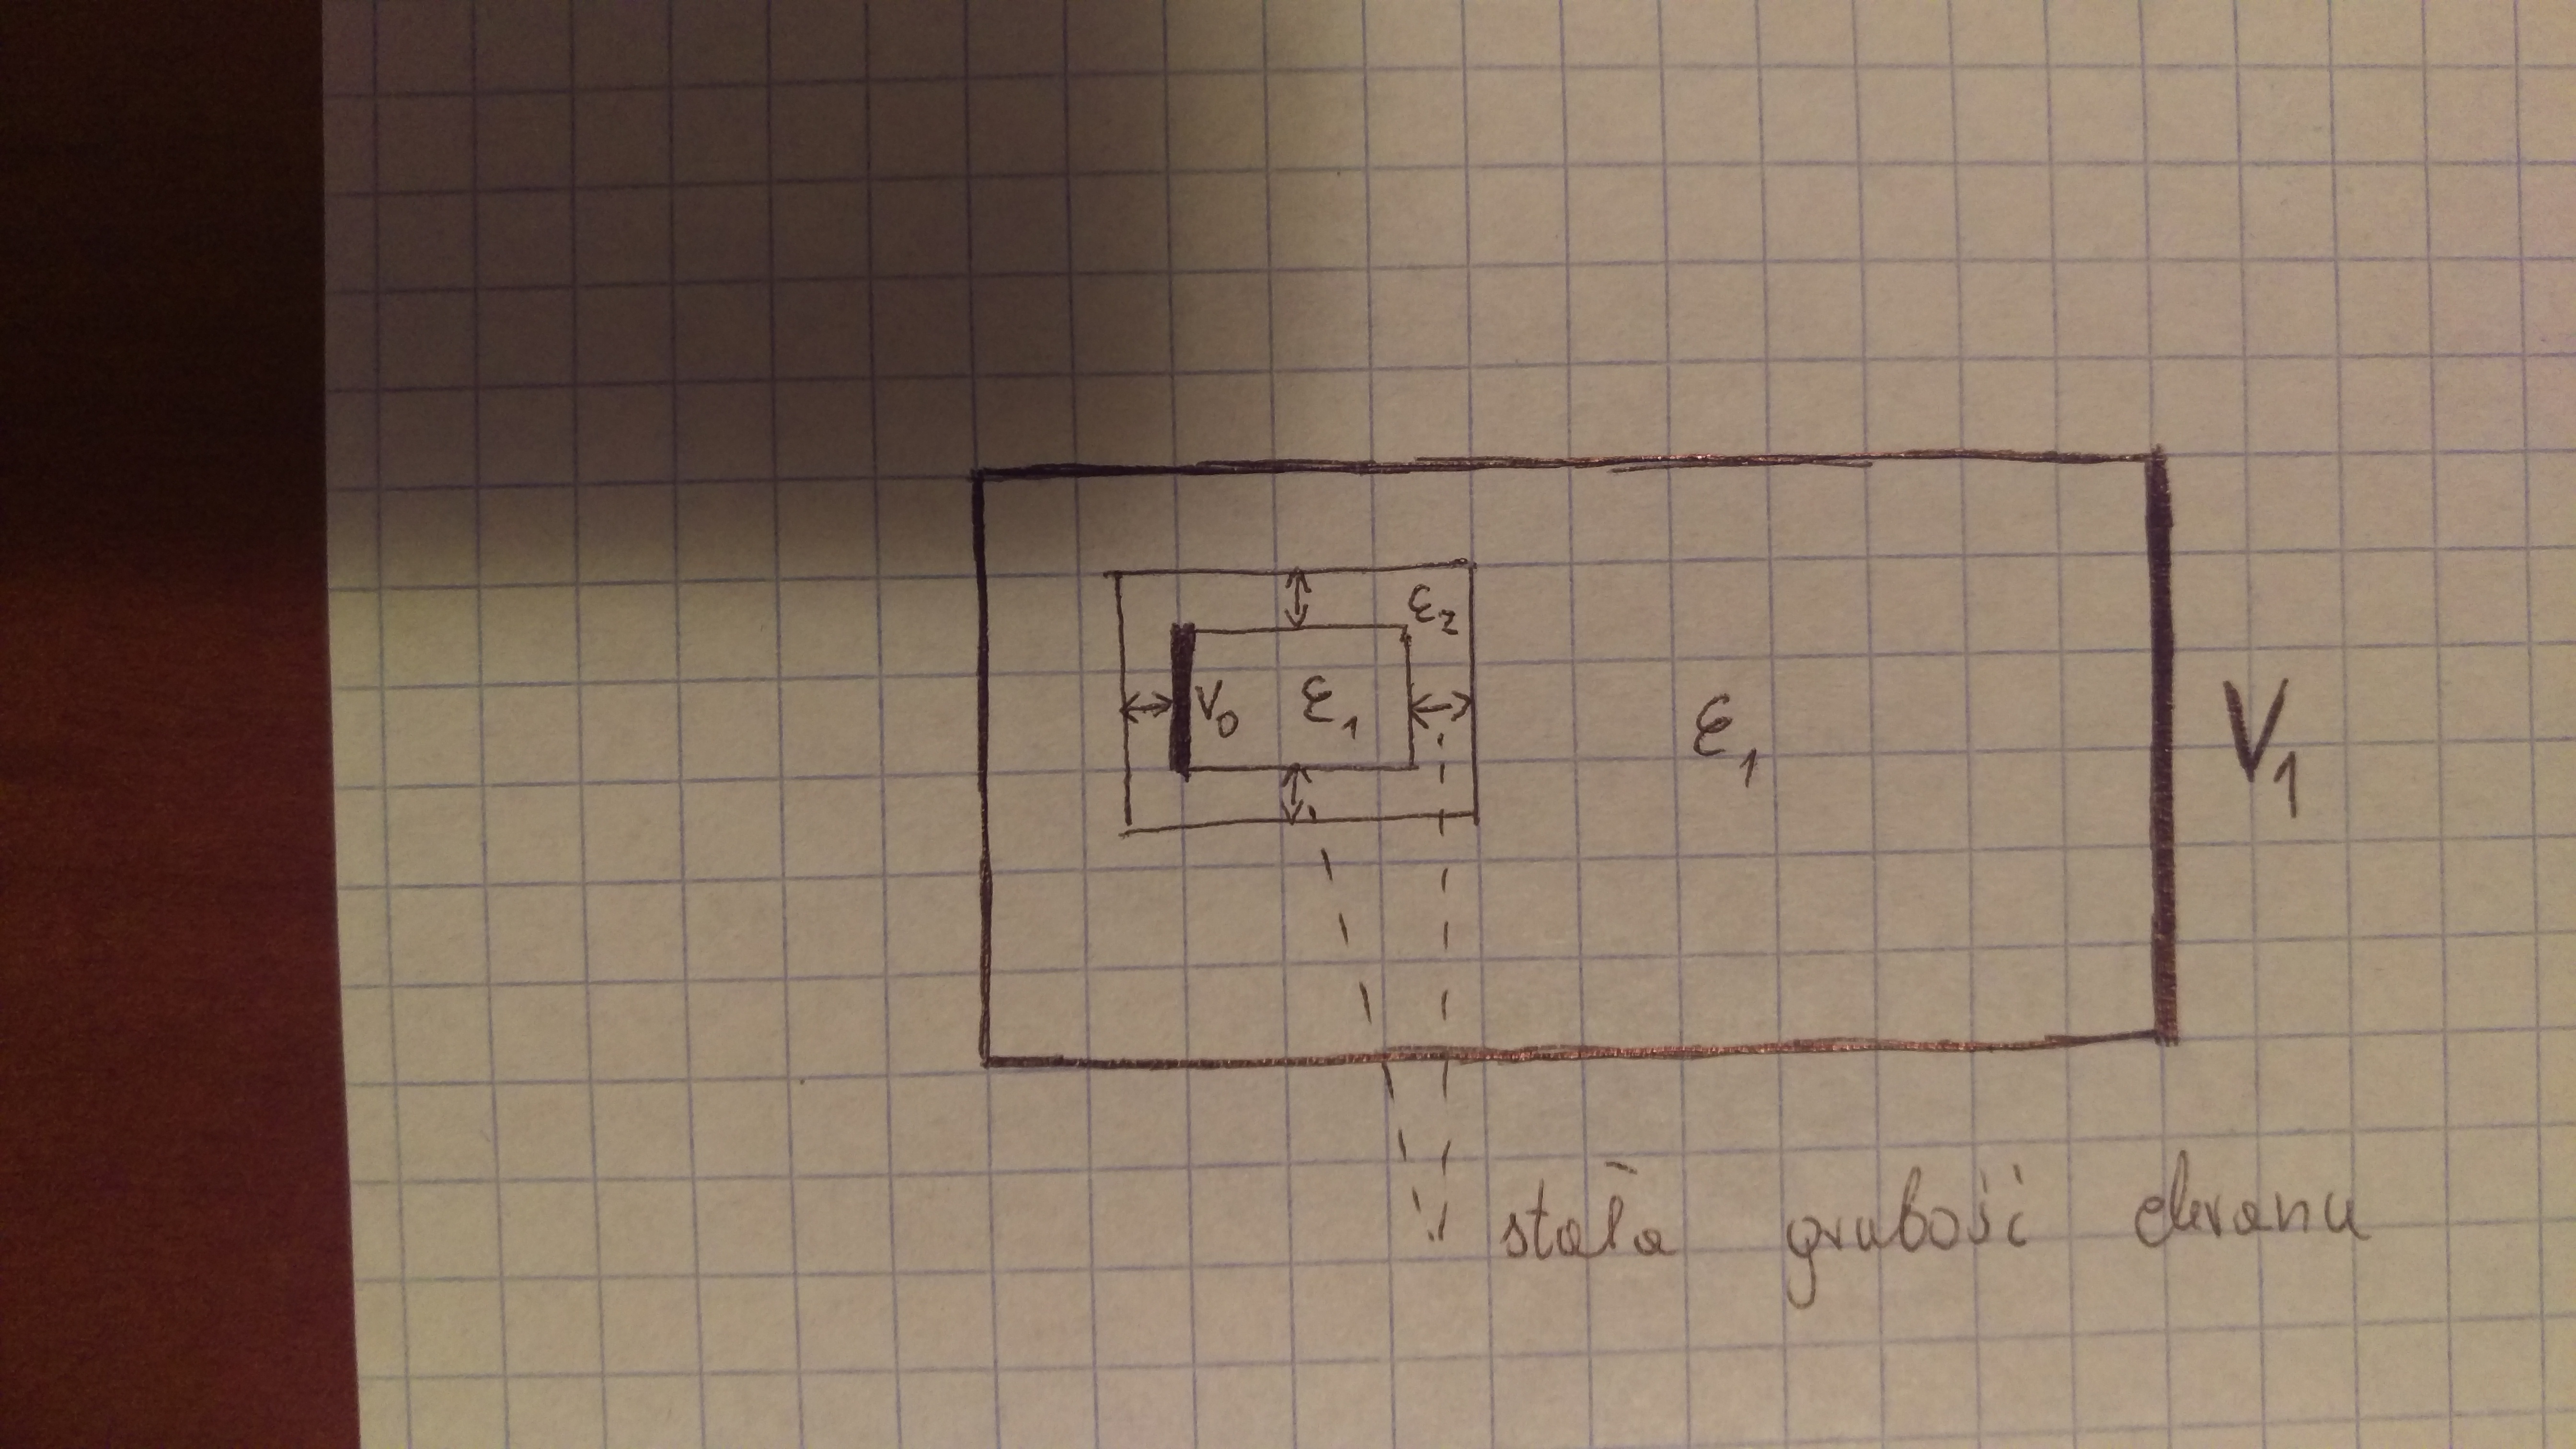 ε₂
V₀ ε₁
ε₁
V₁
stała grubość ekranu